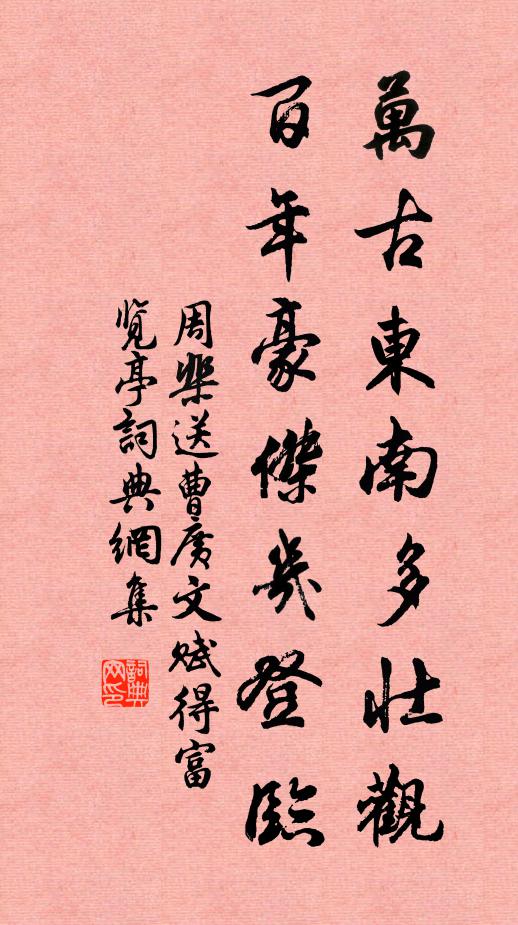 萬古東南多壯觀
百年豪傑幾登臨
周棐送曹廣文賦得富
覽亭詞典網集
詞典
网印